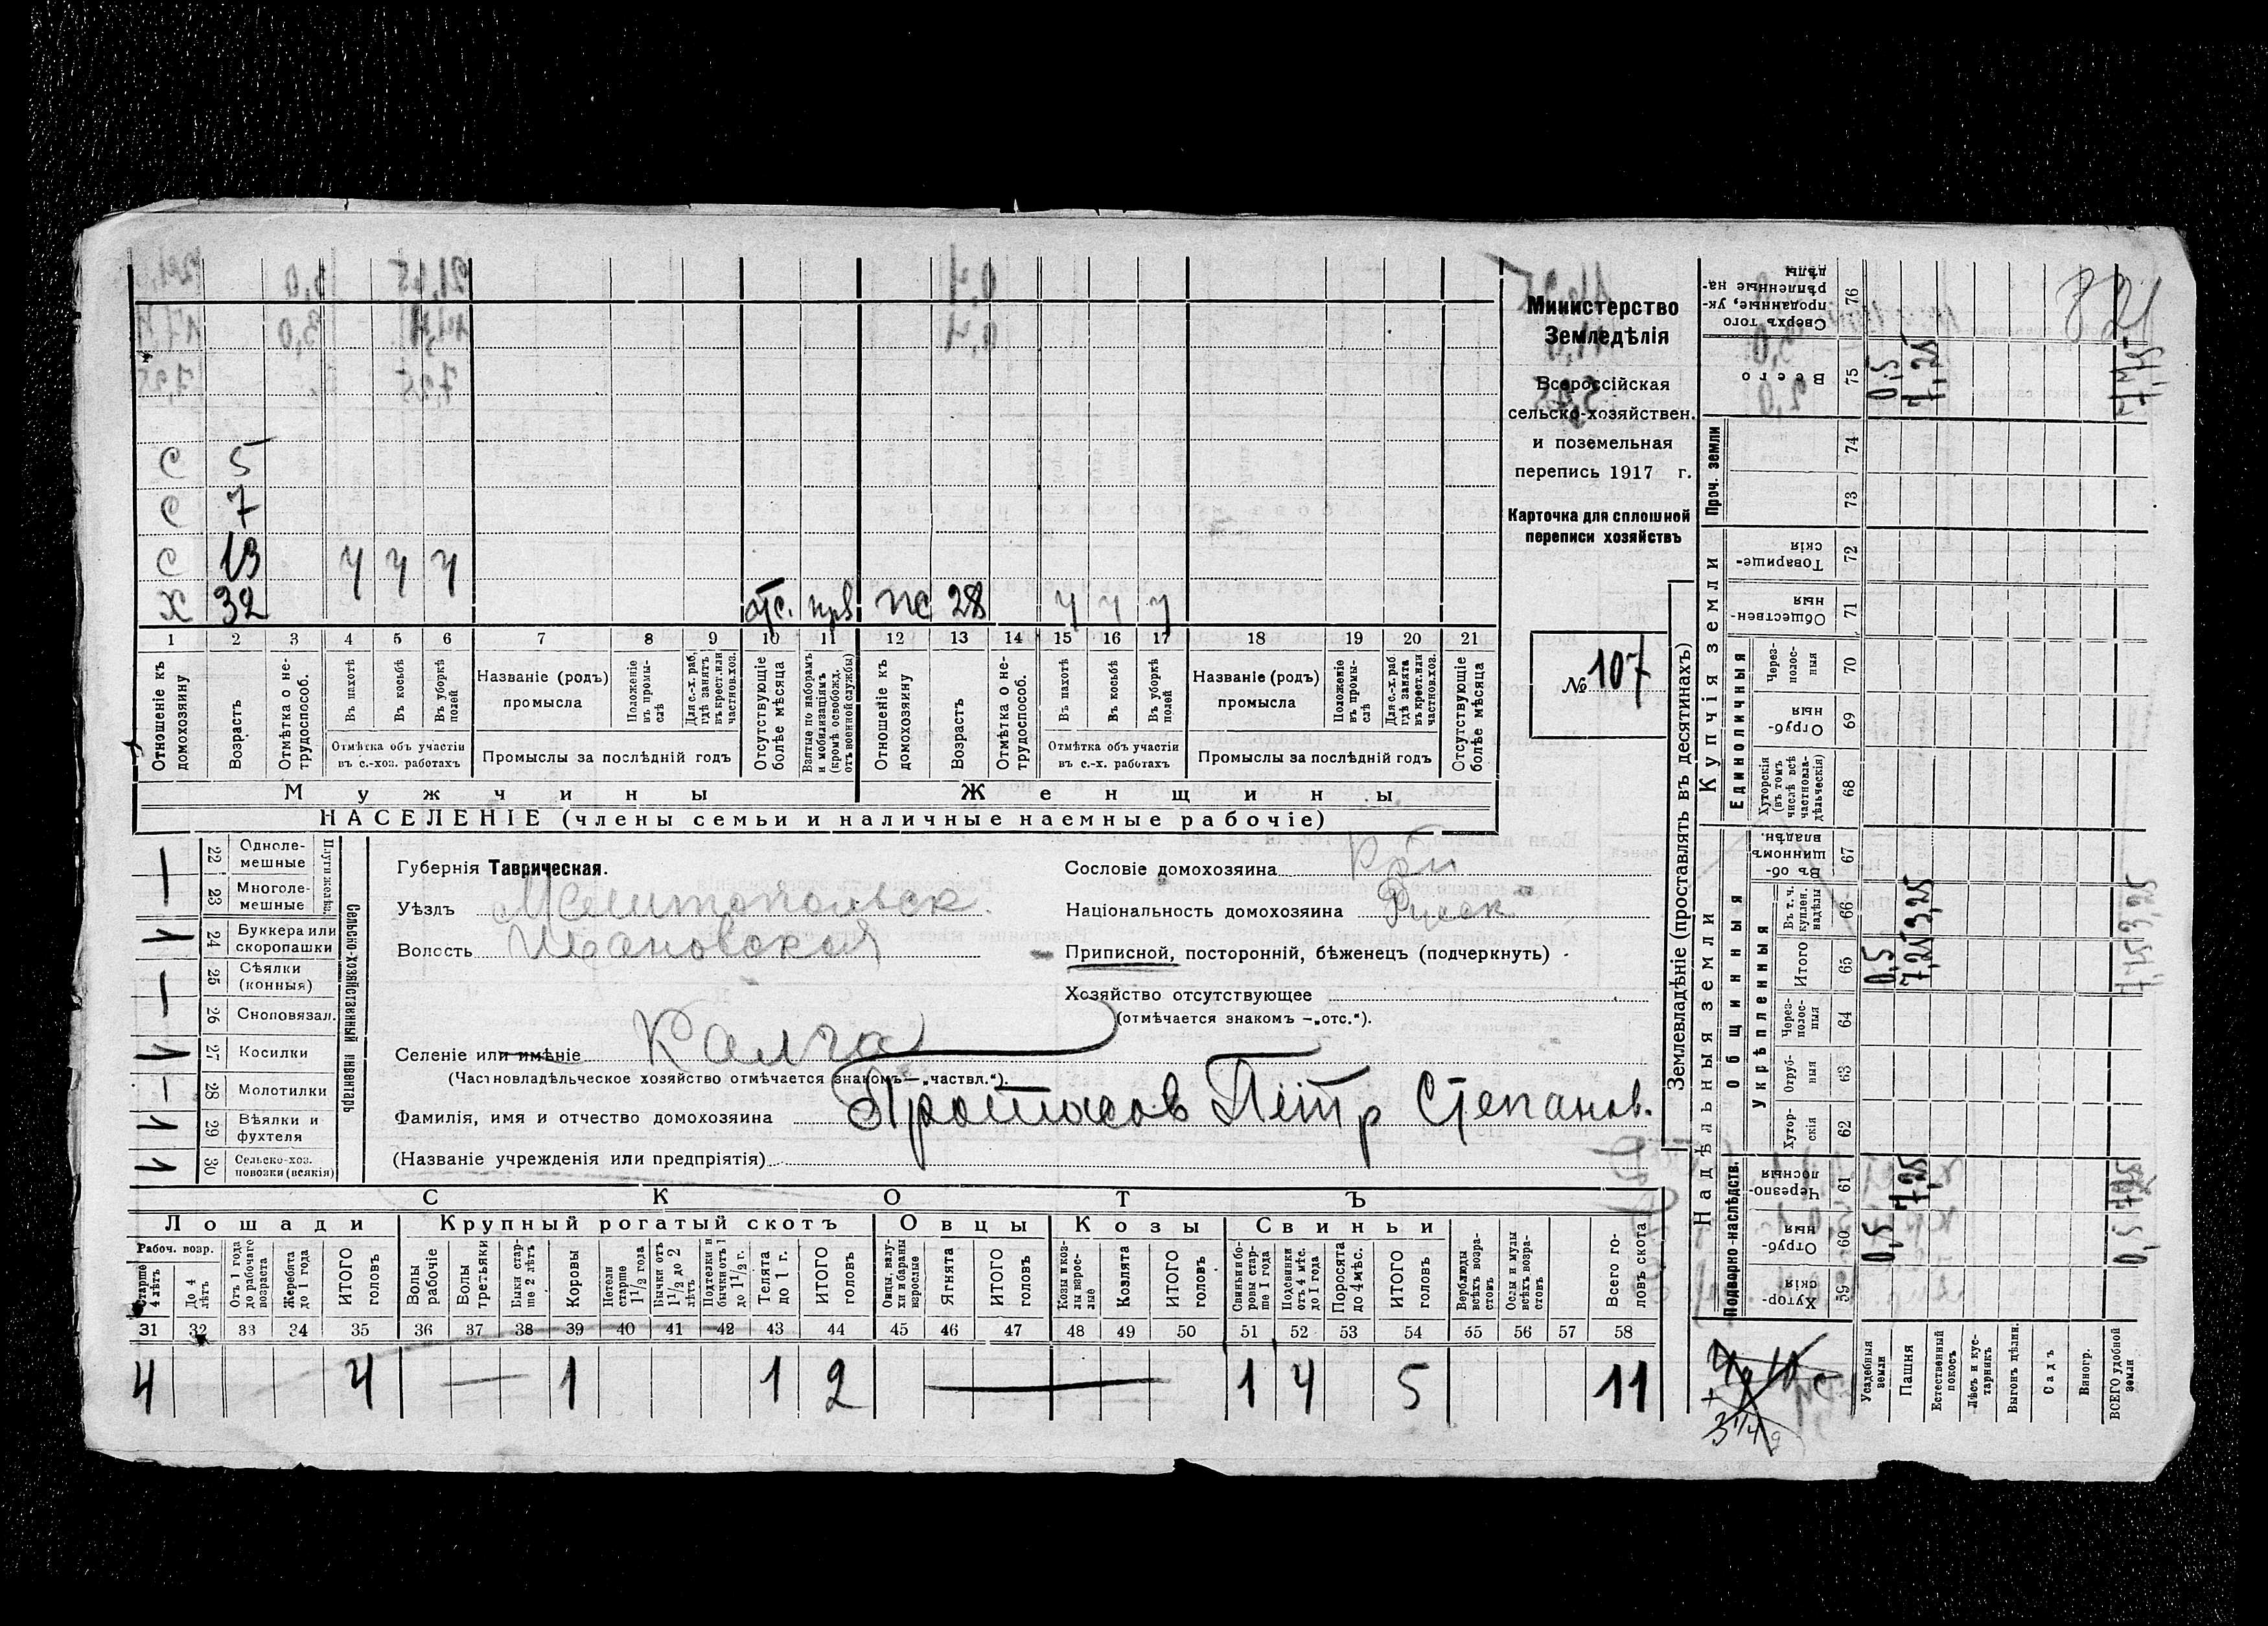 С 5
С 7
С 13 ч ч ч
Х 32 отс. ПС 28 ч ч ч
1 2 3 4 5 6 7 8 9 10 11 12 13 14 15 16 17 18 19 20 21
Отношеніе къ домохозяину
Возрастъ
Отмѣтка о нетрудоспособ.
Въ пахотѣ
Въ косьбѣ
Въ уборкѣ полей
Отмѣтка объ участіи въ с.-хоз. работахъ
Названіе (родъ) промысла
Положеніе въ промыслѣ
Для с.-х. раб. гдѣ занятъ въ крест. или частнов. хоз.
Промыслы за послѣдній годъ
Отсутствующіе болѣе мѣсяца
Взятые по наборамъ и мобилизаціямъ (кромѣ освобожд. отъ военной службы)
Отношеніе къ домохозяину
Возрастъ
Отмѣтка о нетрудоспособ.
Въ пахотѣ
Въ косьбѣ
Въ уборкѣ полей
Отмѣтка объ участіи въ с.-х. работахъ
Названіе (родъ) промысла
Положеніе въ промыслѣ
Для с.-х. раб гдѣ занята въ крест. или частнов. хоз.
Промыслы за послѣдній годъ
Отсутствующіе болѣе мѣсяца
Мужчины Женщины
НАСЕЛЕНІЕ (члены семьи и наличные наемные рабочіе)
Министерство
Земледѣлія
Всероссійская
сельско-хозяйствен.
и поземельная
перепись 1917 г.
Карточка для сплошной
переписи хозяйствъ
№ 107
22 Однолемешные
23 Многолемешные
Плуги желѣз.
24 Буккера или скоропашки
25 Сѣялки (конныя)
26 Сноповязал.
27 Косилки
28 Молотилки
29 Вѣялки и фухтеля
30 Сельско-хоз. повозки (всякія)
Сельско-хозяйственный инвентарь
Губернія Таврическая.
Уѣздъ Мелитопольск.
Волость
Сословіе домохозяина
Національность домохозяина Русск
Приписной, посторонній, бѣженецъ (подчеркнуть)
Хозяйство отсутствующее
(отмѣчается знакомъ —„отс.“).
Селеніе или имѣніе Калга
(Частновладѣльческое хозяйство отмѣчается знакомъ—„частвл.“).
Фамилія, имя и отчество домохозяина Протасов Пётр Степанов.
(Названіе учрежденія или предпріятія)
СКОТЪ
Лошади Крупный рогатый скотъ Овцы Козы Свиньи
Рабоч. возр.
Старше 4 лѣтъ
До 4 лѣтъ
Отъ 1 года до рабочаго возраста
Жеребята до 1 года
ИТОГО головъ
Волы рабочіе
Волы третьяки
Быки старше 2 лѣтъ
Коровы
Нетели старше 1 1/2 года
Бычки отъ 1 1/2 до 2 лѣтъ
Подтелки и бычки отъ 1 до 1 1/2 г.
Телята до 1 г.
ИТОГО головъ
Овцы, валухи и бараны взрослые
Ягнята
ИТОГО головъ
Козы и козлы взрослые
Козлята
ИТОГО головъ
Свиньи и боровы старше 1 года
Подсвинки отъ 4 мѣс. до 1 года
Поросята до 4 мѣс.
ИТОГО головъ
Верблюды всѣхъ возрастовъ
Ослы и мулы всѣхъ возрастовъ
Всего головъ скота
31 32 33 34 35 36 37 38 39 40 41 42 43 44 45 46 47 48 49 50 51 52 53 54 55 56 57 58
4 4 — 1 1 2 — 1 4 5 11
Землевладѣніе (проставлять въ десятинахъ)
Надѣльныя земли Купчія земли
Подворно-наслѣдств.
Общинныя
Укрѣпленныя
Единоличныя
Проч. земли
Хуторскія 59
Отрубныя 60
Черезполосныя 61
Хуторскія 62
Отрубныя 63
Черезполосныя 64
Итого 65
Въ т. ч. куплен. надѣлы 66
Въ общинномъ владѣн. 67
Хуторскія (въ томъ числѣ всѣ частновладѣльческія) 68
Отрубныя 69
Черезполосныя 70
Общественныя 71
Товарищескія 72
73
74
Всего 75
Сверхъ того проданные, укрѣпленные надѣлы 76
Усадебныя земли 0,5 0,5 0,5
Пашня 7,25 7,25 3,25 7,25
Естественный покосъ
Лѣсъ и кустарникъ
Выгонъ дѣлин.
Садъ
Виногр.
ВСЕГО удобной земли 0,5 7,25 7,75 3,25 7,75
821